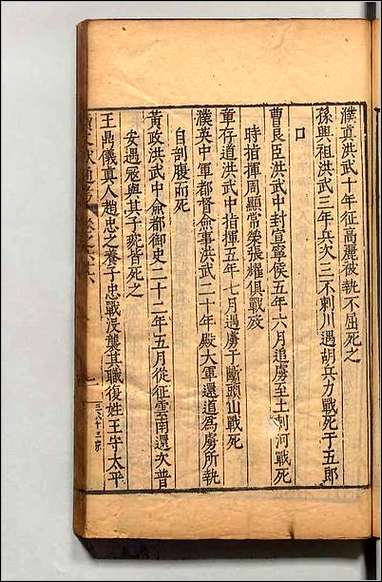 濮真洪武十年征高麗被執不屈死之
孫興祖洪武三年兵次三不剌川遇胡兵力戰死于五郎
口
曹良臣洪武中封宣寧侯五年六月追虜至土剌河戰死
時指揮周顯常榮張耀俱戰歿
章存道洪武中指揮五年七月遇虜于斷頭山戰死
濮英中軍都督僉事洪武二十年殿大軍還道為虜所執
自剖腹而死
黃政洪武中僉都御史二十二年五月從征雲南還次普
安遇冦與其子琬皆死之
王鼎儀真人趙忠之養子忠戰沒襲其職復姓王守太平
文獻通考